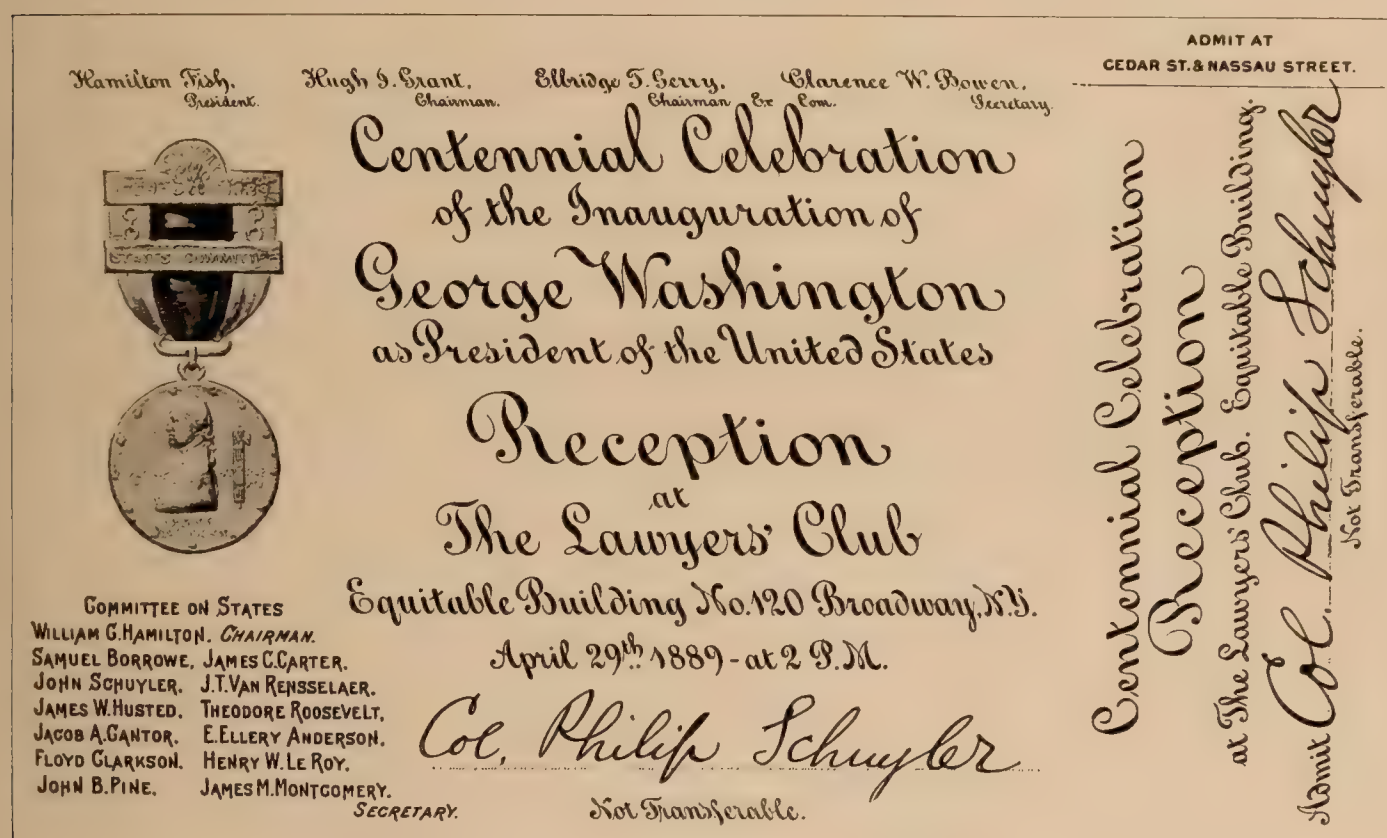 Hamilton Fish,
President.
Hugh J. Grant,
Chairman.
Elbridge T. Gerry,
Chairman Ex Com.
Clarence W. Bowen,
Secretary.
Centennial Celebration
of the Inauguration of
George Washington
as President of the United States
Reception
at
The Lawyers' Club
Equitable Building No. 120 Broadway, N.Y.
April 29th 1889 - at 2 P.M.
Col. Philip Schuyler
Not Transferable.
COMMITTEE ON STATES
WILLIAM G. HAMILTON. CHAIRMAN.
SAMUEL BORROWE, JAMES C. CARTER.
JOHN SCHUYLER. J.T. VAN RENSSELAER.
JAMES W. HUSTED. THEODORE ROOSEVELT,
JACOB A. CANTOR. E. ELLERY ANDERSON.
FLOYD CLARKSON. HENRY W. LE ROY.
JOHN B. PINE. JAMES M. MONTGOMERY.
SECRETARY.
ADMIT AT
CEDAR ST. & NASSAU STREET.
Centennial Celebration
Reception
at The Lawyers' Club. Equitable Building.
Admit Col. Philip Schuyler
Not Transferable.